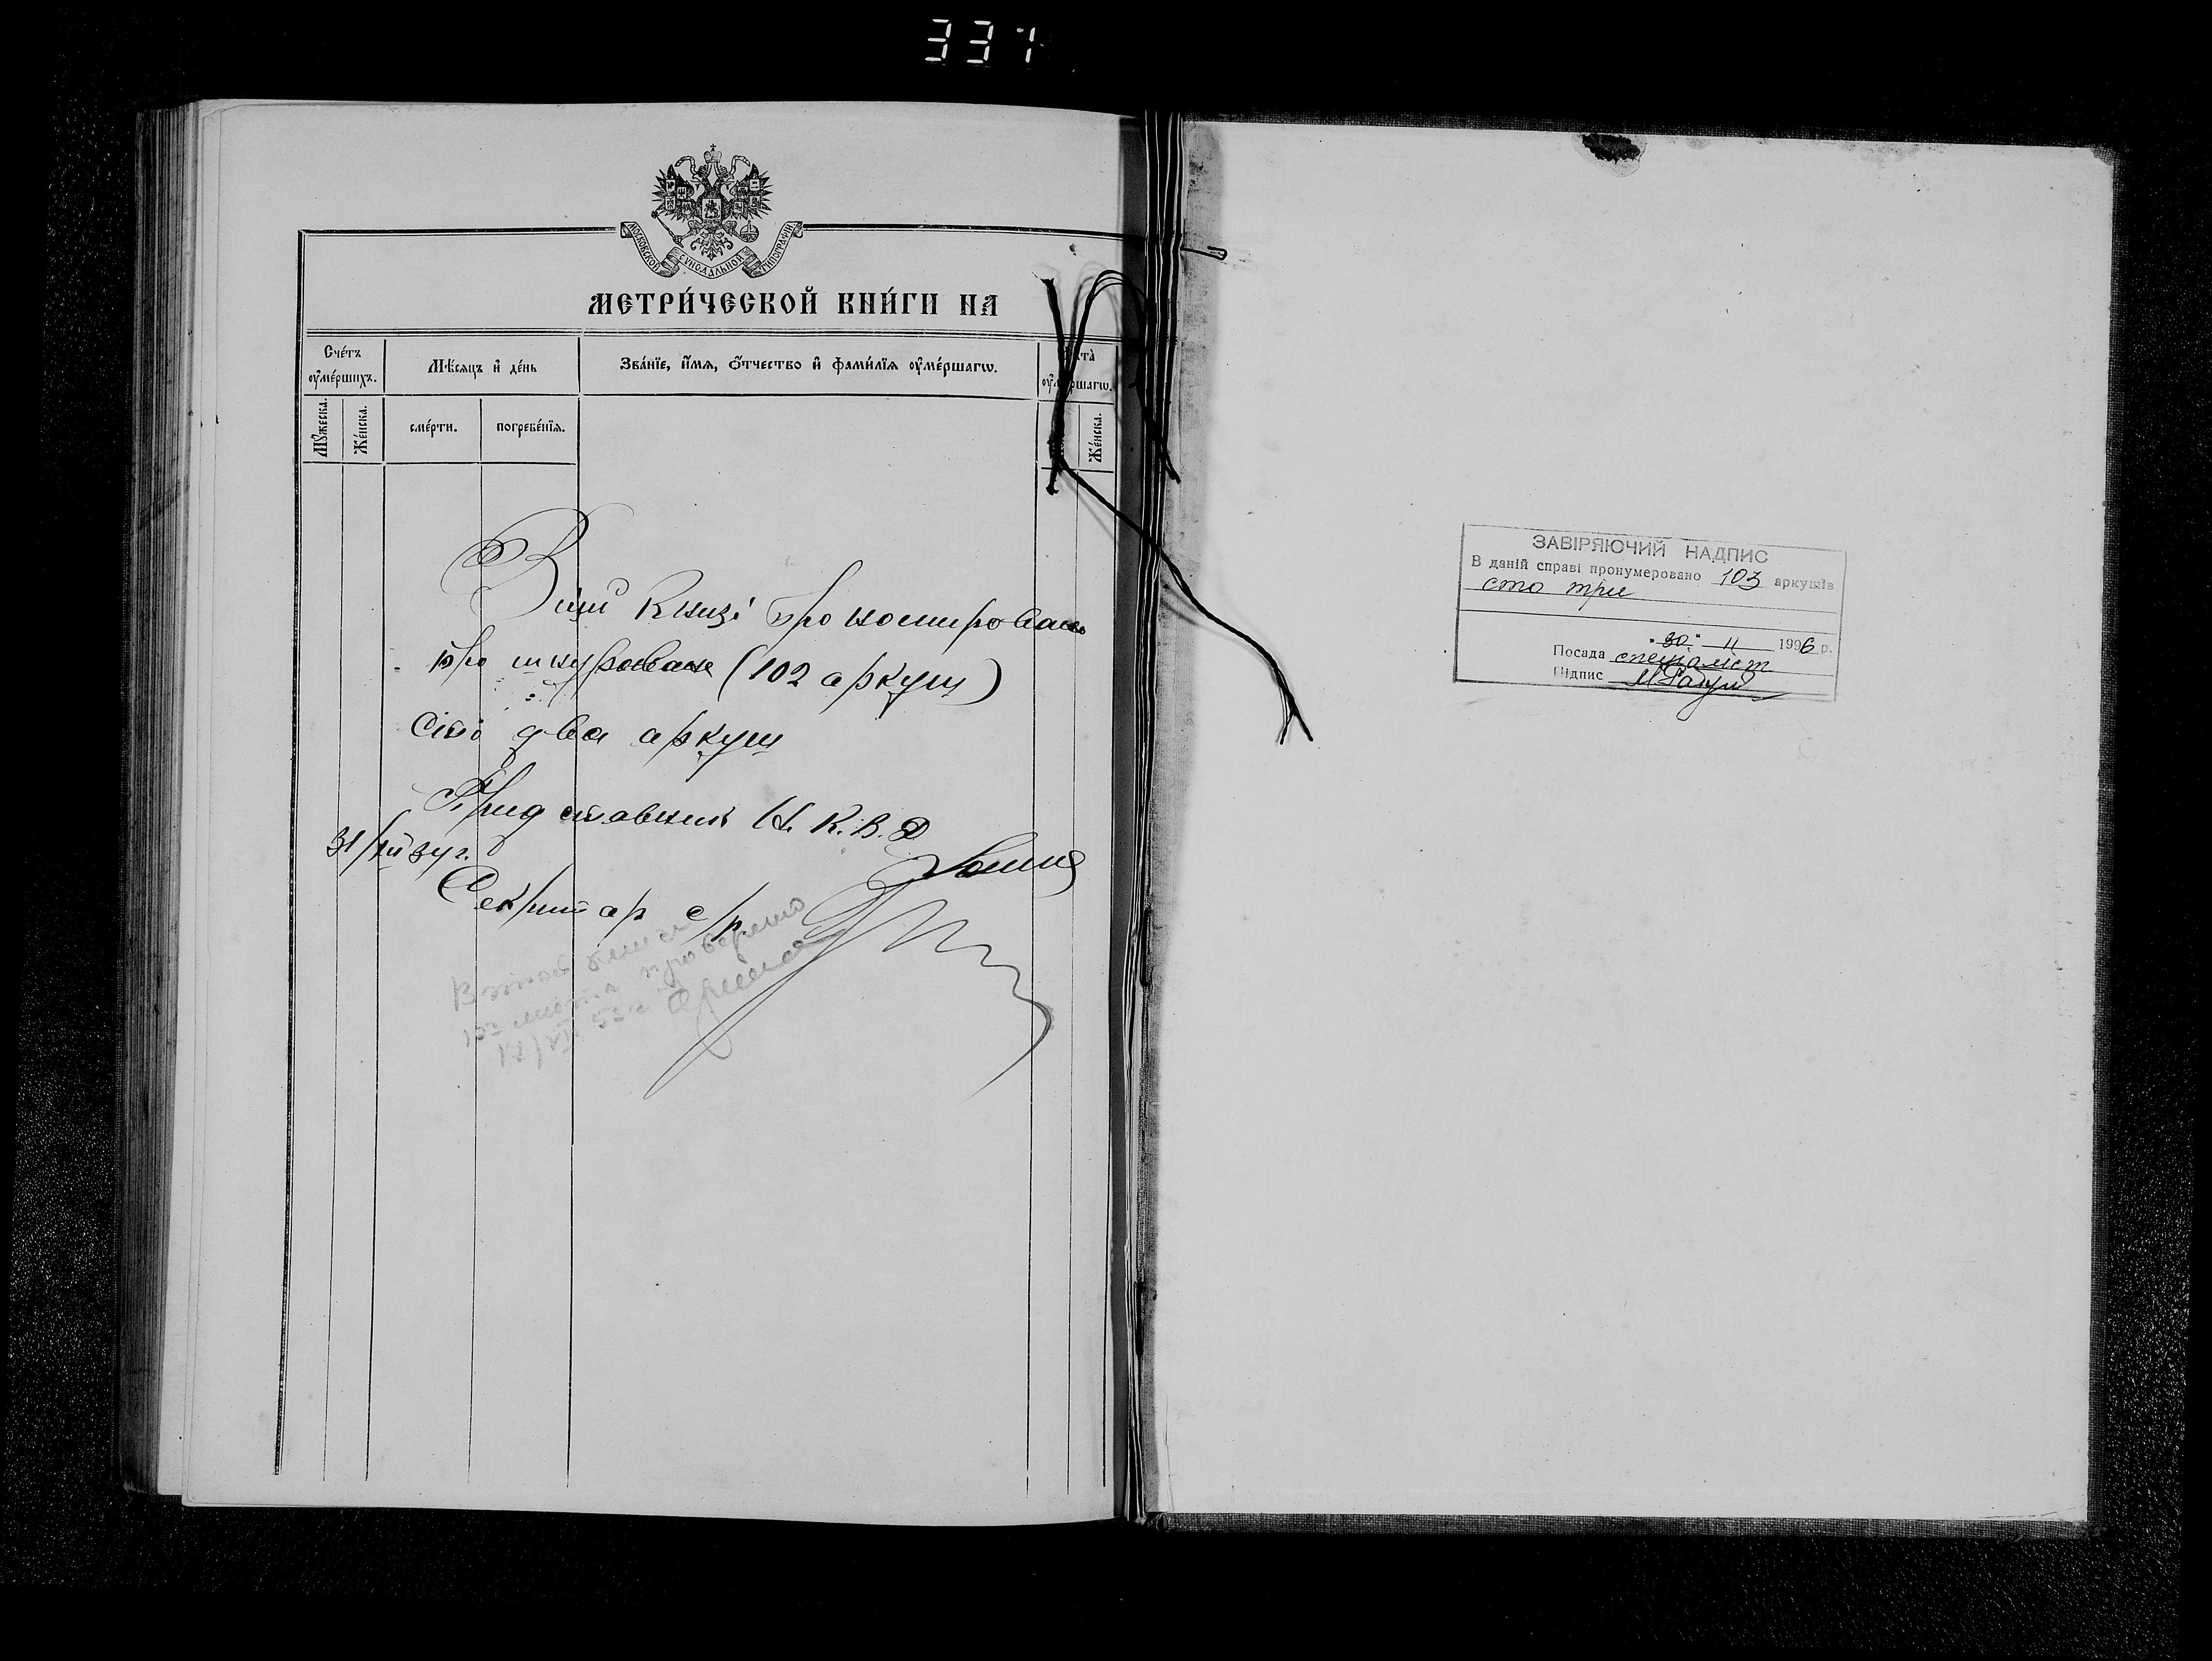 337
МОСКОВСКОЙ СѴНОДАЛЬНОЙ ТИПОГРАФІИ
МЕТРИ́ЧЕСКОЙ КНИ́ГИ НА
Сче́тъ оу҆ме́ршихъ.
Мѣ́сяцъ и҆ де́нь
Зва́нїе, и҆́мѧ, ѻ҆́тчество и҆ фами́лїѧ оу҆ме́ршагѡ.
Лѣта̀ оу҆ме́ршагѡ.
Мꙋ́жеска.
Же́нска.
сме́рти.
погребе́нїѧ.
Же́нска.
В цій книзі прономировано
прошнуроване (102 аркуш)
сто два аркуш
Придставник Н.К.В.Д
31/ 34 г.
Секритар с/р.
В этой книге
103 листа проверено
ЗАВІРЯЮЧИЙ НАДПИС
В даній справі пронумеровано 103 аркушів
сто три
"30" 11 1996 р.
Посада спеціаліст
Підпис